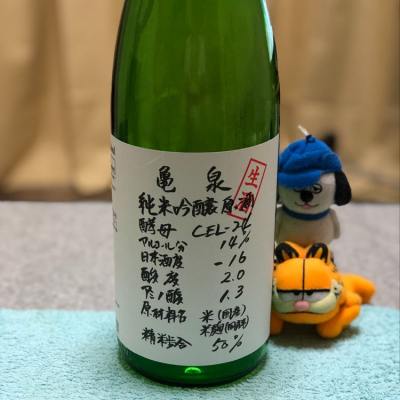 亀泉
生酒
純米吟醸原酒
酵母 CEL-24
アルコール分 14%
日本酒度 -16
酸度 2.0
アミノ酸 1.3
原材料名 米(国産)
米麹(国産米)
精米歩合 50%